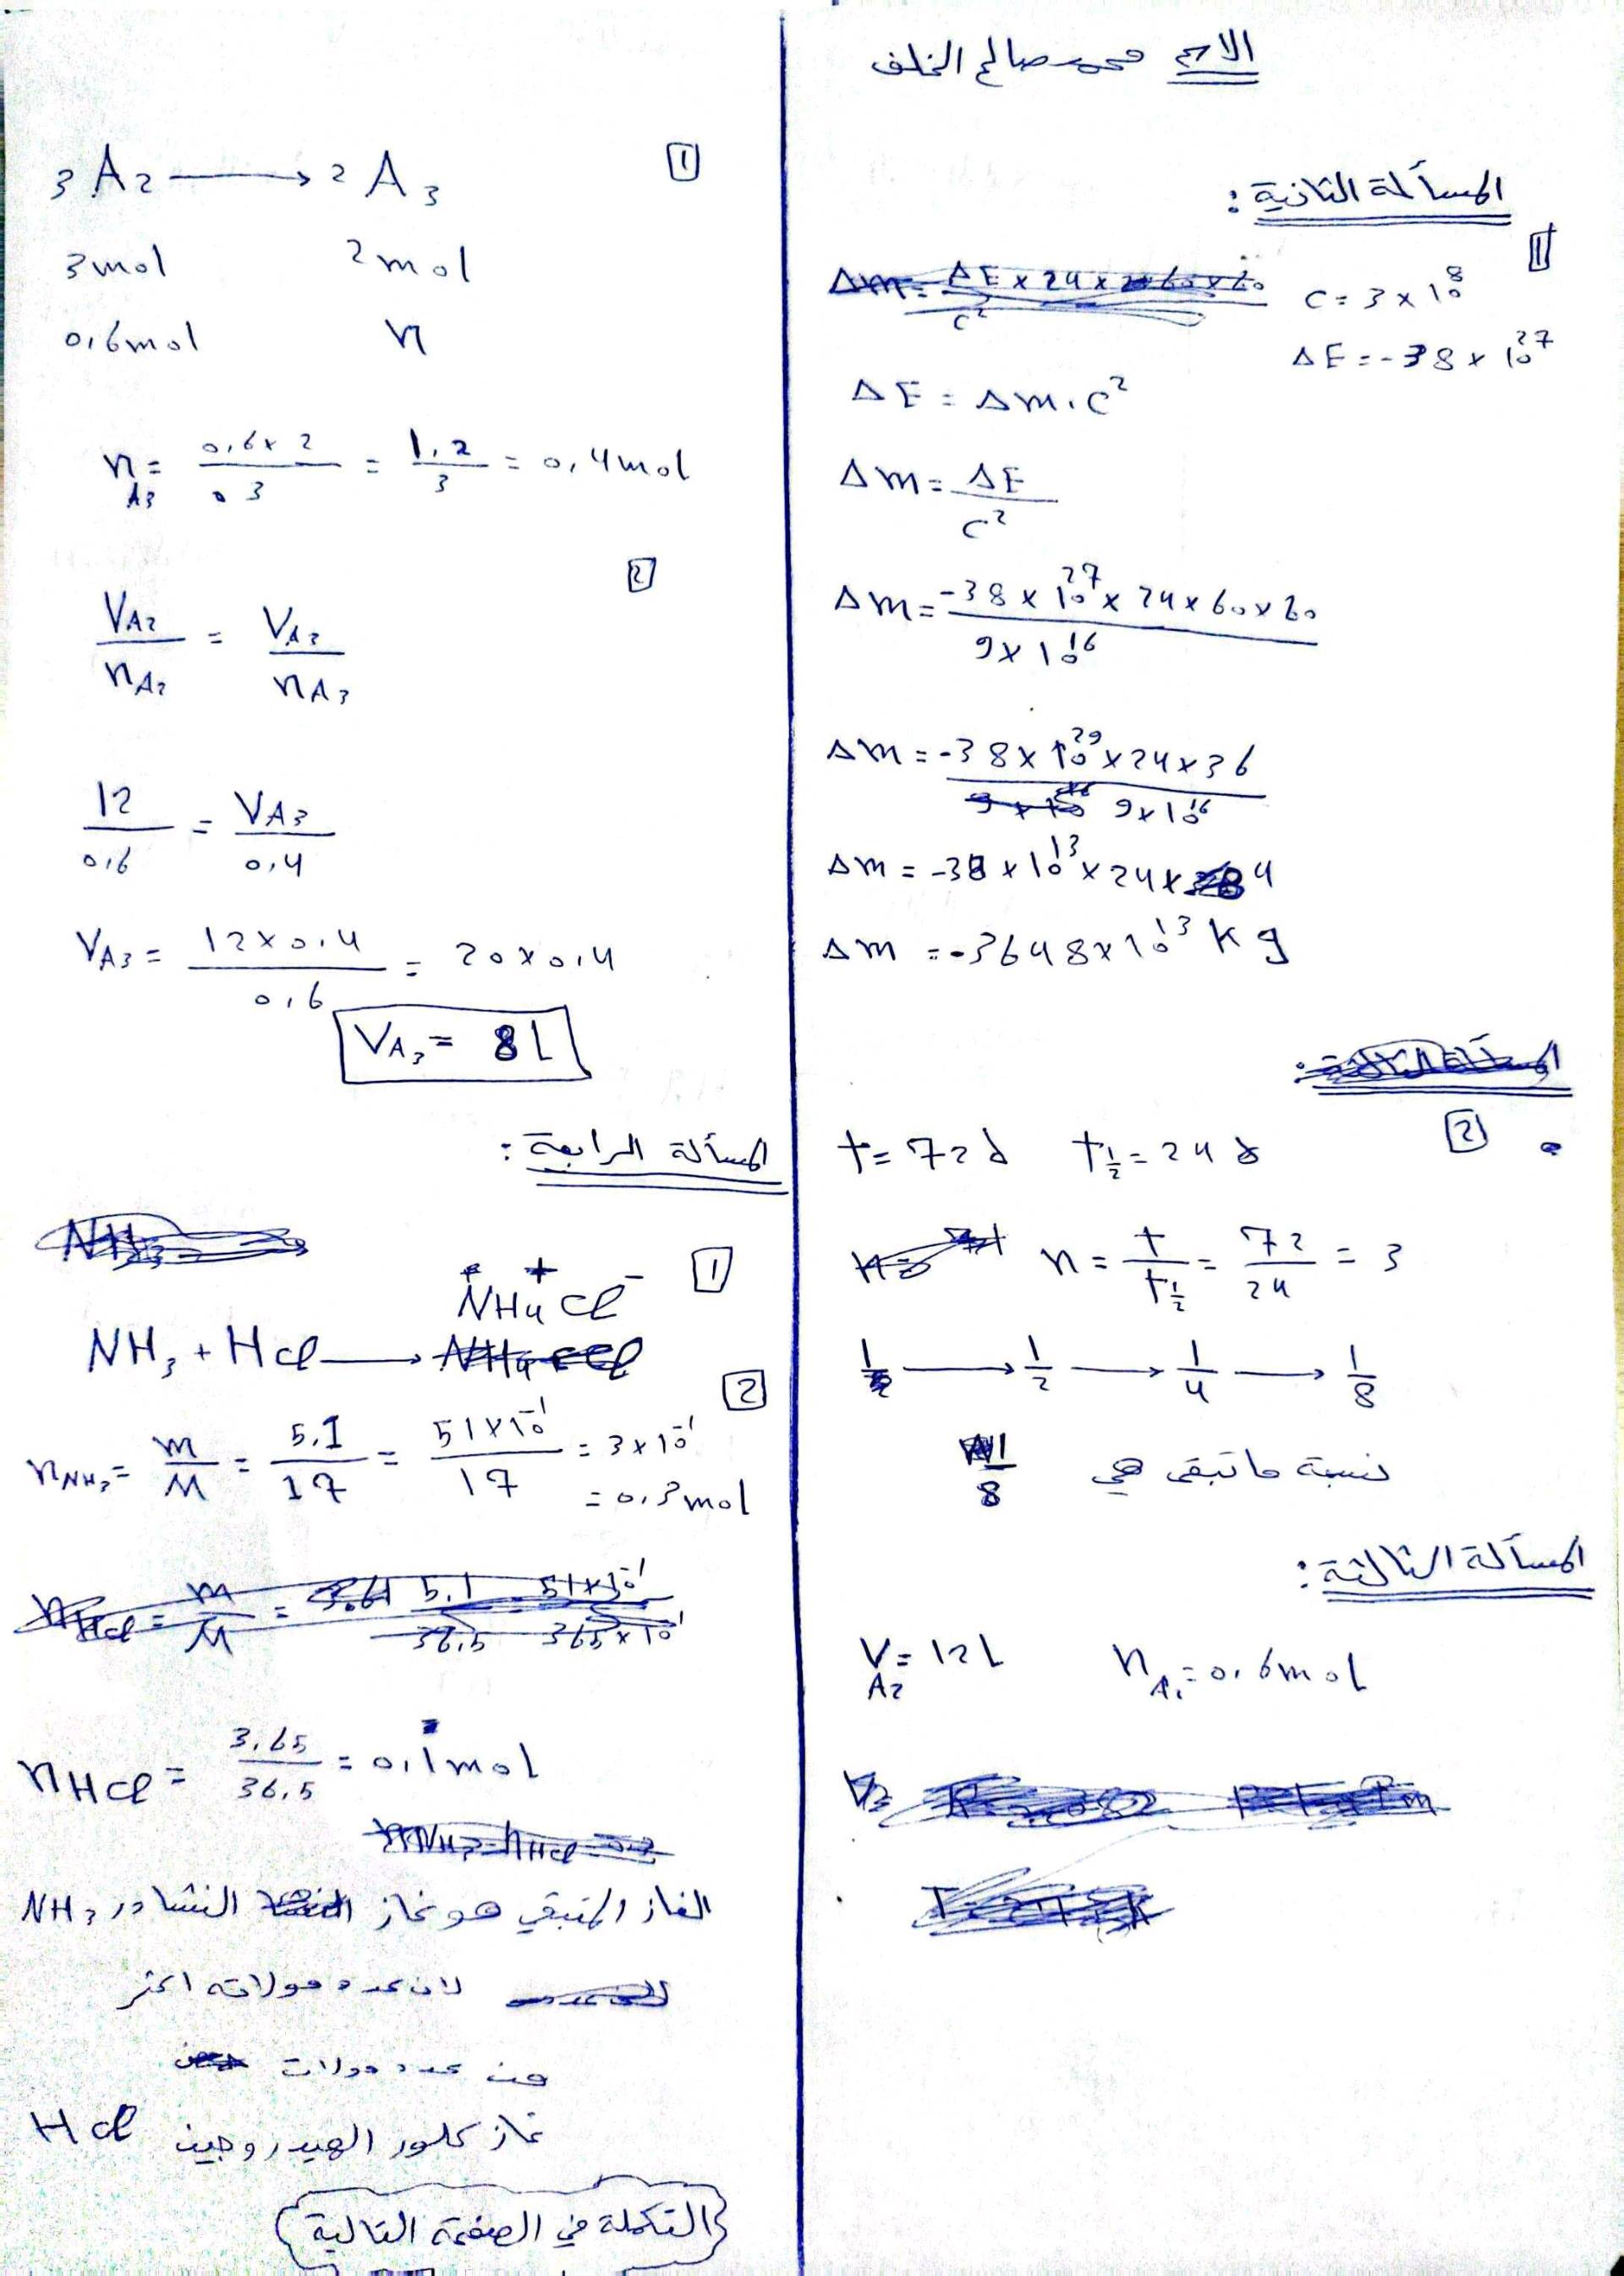 الاسم محمد صالح الخلف
المسألة الثانية:
1
C = 3 × 10^8
ΔE = -38 × 10^27
ΔE = Δm . C²
Δm = ΔE / C²
Δm = -38 × 10^27 × 24 × 60 × 60 / 9 × 10^16
Δm = -38 × 10^29 × 24 × 36 / 9 × 10^16
Δm = -38 × 10^13 × 24 × 4
Δm = -3648 × 10^13 kg
2
t = 72 d t½ = 24 d
n = t / t½ = 72 / 24 = 3
1 → 1/2 → 1/4 → 1/8
نسبة ما تبقى هي 1/8
المسألة الثالثة:
V A2 = 12 L n A2 = 0,6 mol
1
3 A2 → 2 A3
3 mol 2 mol
0,6 mol n
n A3 = 0,6 × 2 / 3 = 1,2 / 3 = 0,4 mol
2
V A2 / n A2 = V A3 / n A3
12 / 0,6 = V A3 / 0,4
V A3 = 12 × 0,4 / 0,6 = 20 × 0,4
V A3 = 8 L
المسألة الرابعة:
1
NH3 + HCl → NH4+ Cl-
2
n NH3 = m / M = 5,1 / 17 = 51 × 10^-1 / 17 = 3 × 10^-1
= 0,3 mol
n HCl = 3,65 / 36,5 = 0,1 mol
الغاز المتبقي هو غاز النشادر NH3
لان عدد مولاته اكثر
من عدد مولات
غاز كلور الهيدروجين HCl
التكملة في الصفحة التالية